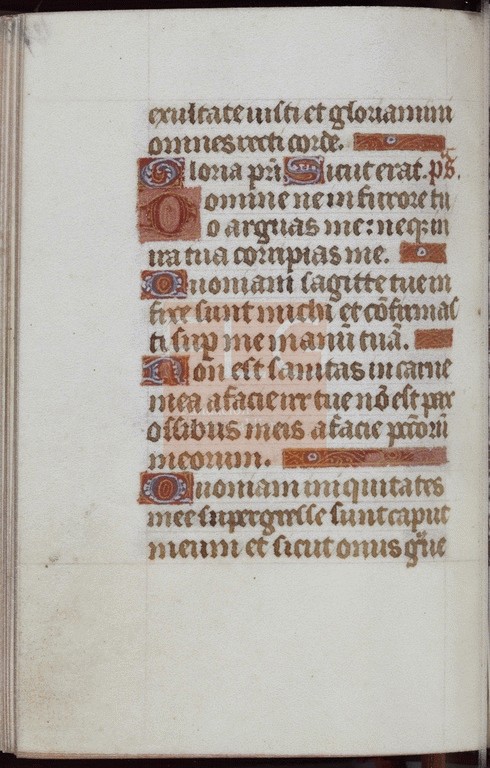 exultate iusti et gloriamini
omnes recti corde.
Gloria pr̄i Sicut erat. ps̄.
Domine ne in furore tu
o arguas me: neq; in
ira tua corripias me.
Quoniam sagitte tue in
fixe sunt michi et cōfirmas
ti sup me manū tuā.
Non est sanitas in carne
mea a facie ire tue nō est pax
ossibus meis a facie pctōrū
meorum.
Quoniam iniquitates
mee supergresse sunt caput
meum et sicut onus gͣue